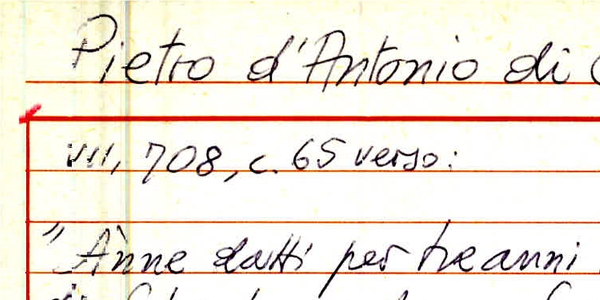 Pietro d'Antonio di
VII, 708, c. 65 verso:
"Ànne datti per tre anni
di